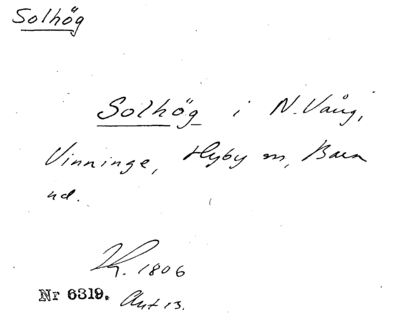 Solhög
Solhög i N. Vång,
Vinninge, Hyby sn, Bara
hd.
K. 1806
Nr 6319. Akt 13.